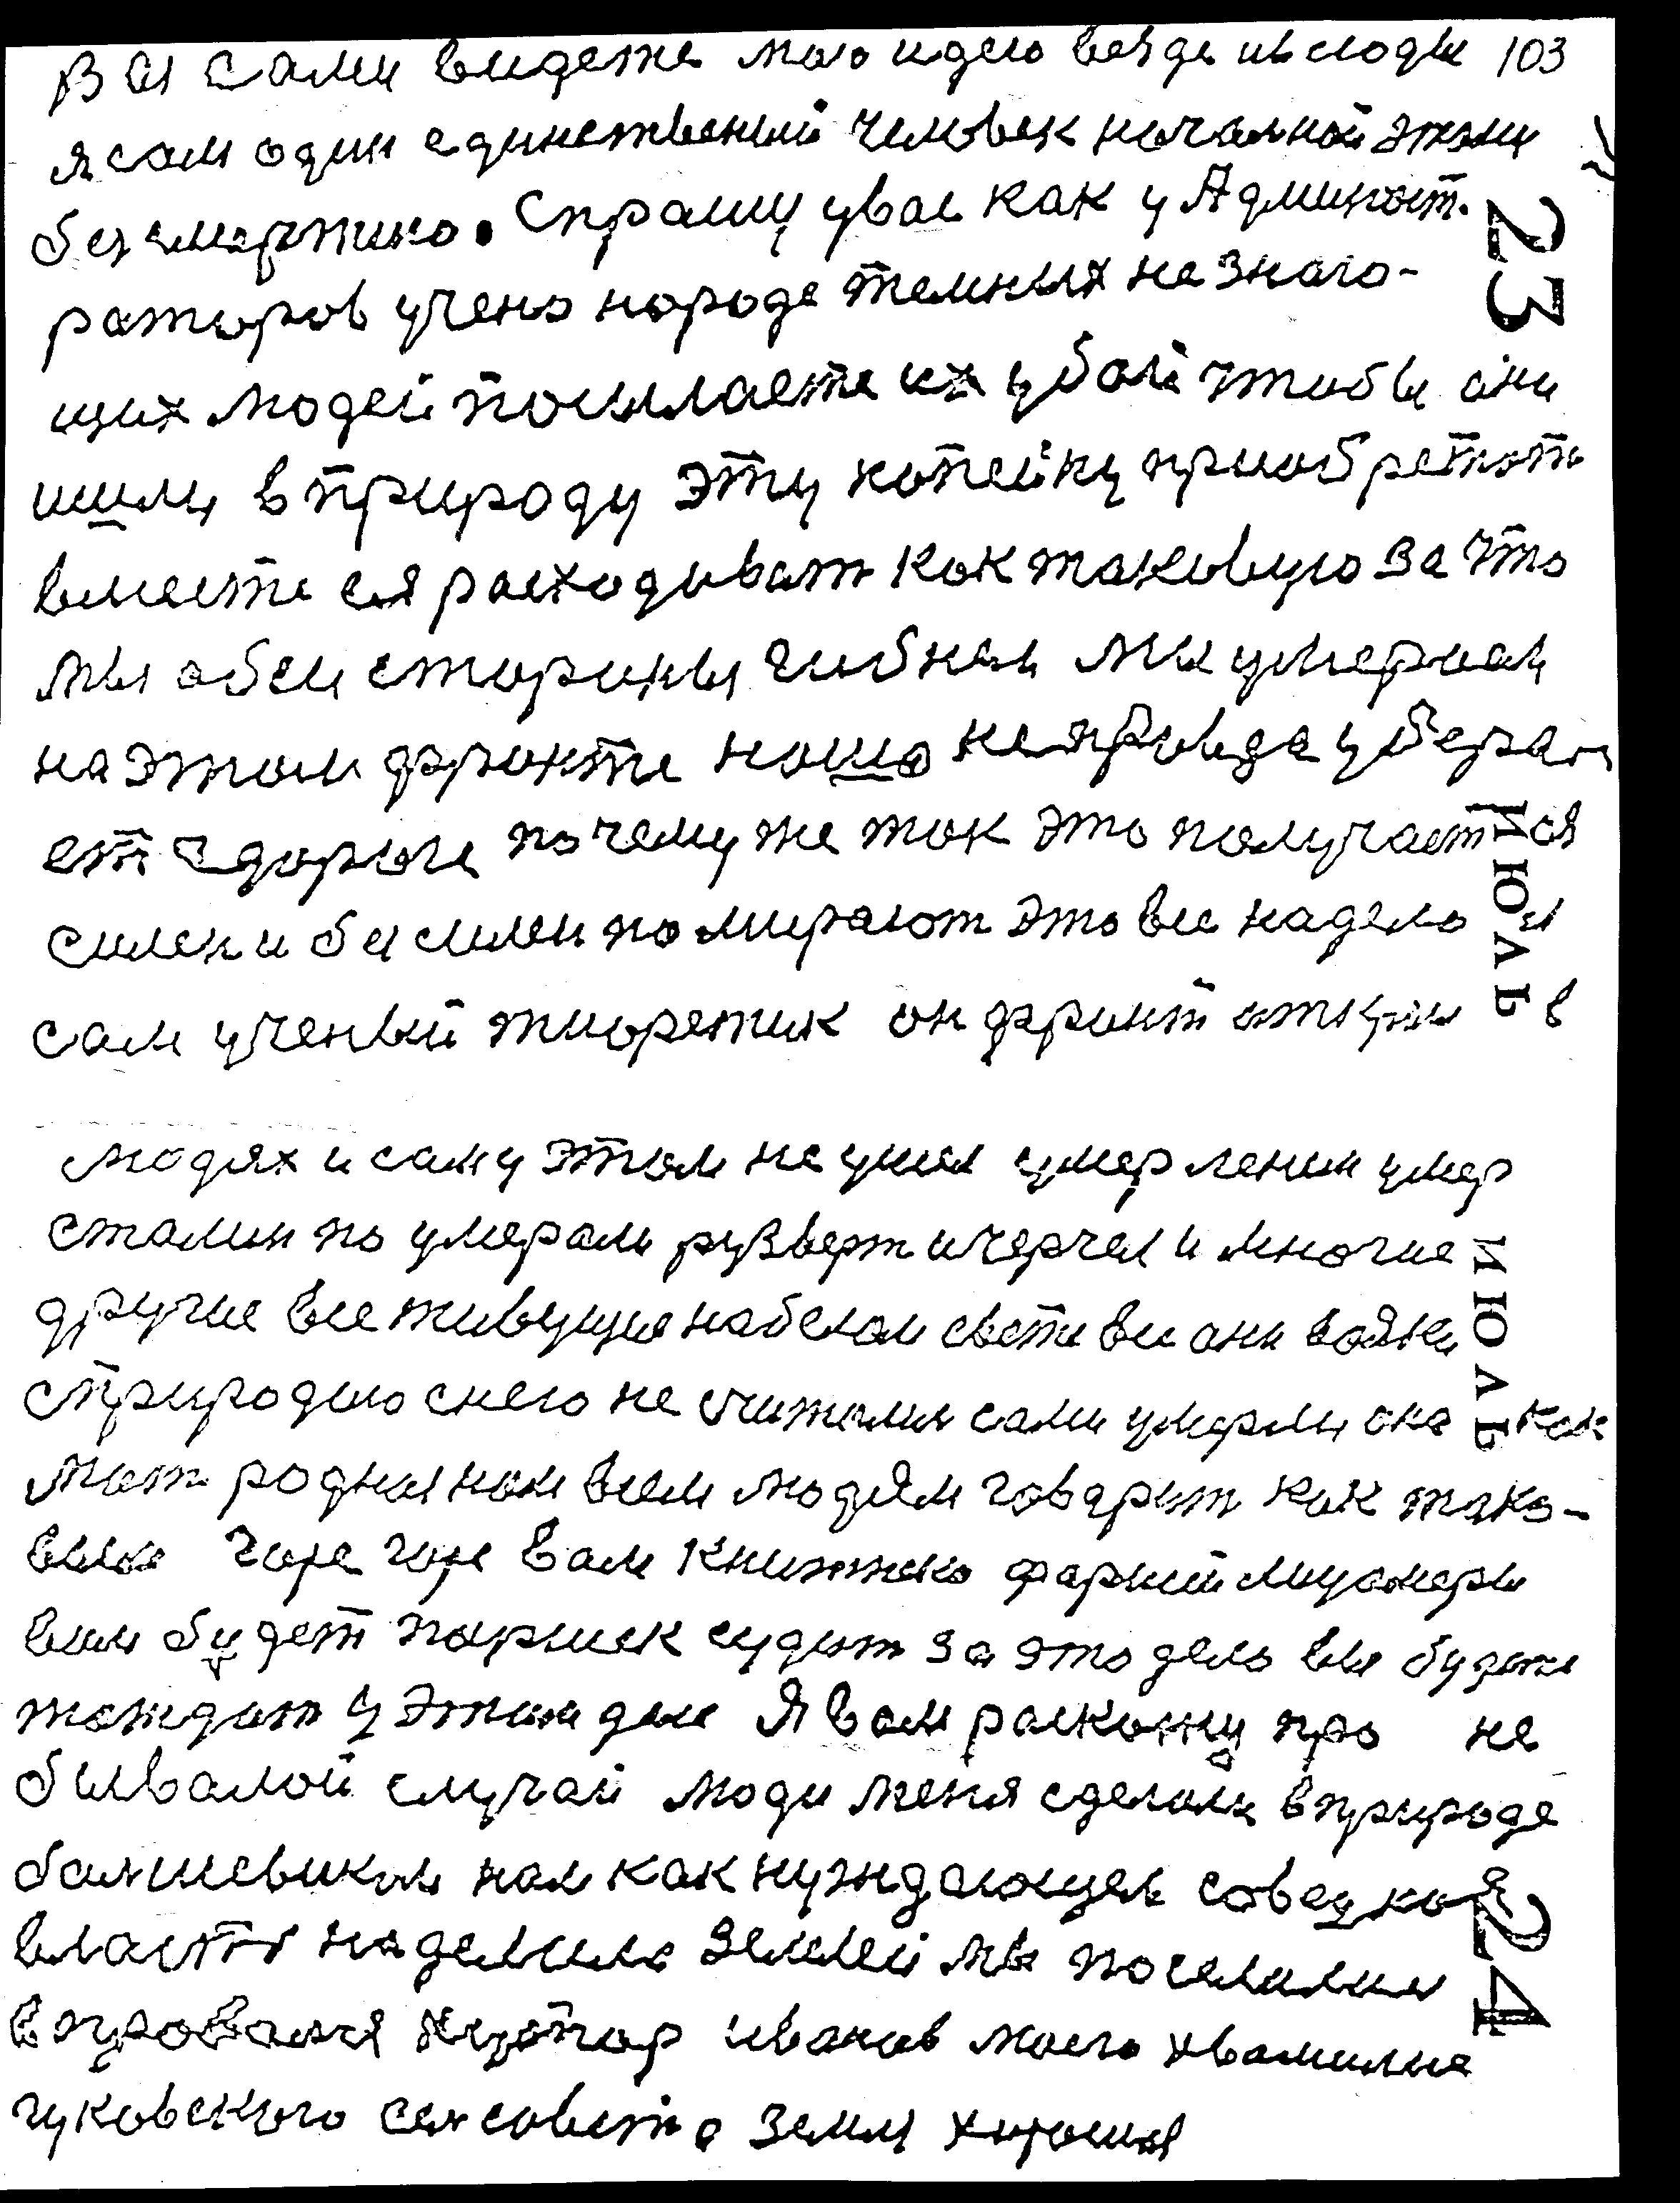 Вы сами видете мою идею везде и всюды 103
я сам один единственый человек началной этой
без смертию. Спрашу у вас как у Админист-
раторов учено народе темных не знаю-
щих людей посылаете их у бой чтобы они
ишли в природу эту копейку приобретат
вместе ея расходыват как таковую за что
мы обеи стороны гибнем мы умераем
на этом фронте наша неправда убера-
ет с дороги почему же так это получается
силен и бесилен помирают это все надело
сам ученый тиоретик он фронт откры в
23
ИЮЛЬ
людях и сам у этом не ушел умер ленин умер
сталин по умерали рузверт и черчел и многие
другие все живущие на белом свети все они вояки
с природою с нею не считалис сами умерли она как
мат родная нам всем людям говорит как тако-
вым горе горе вам книжнею фарисеи
вам будет париж судит за это дело вы будете
жаждат у этим деле Я вам раскожу про не
бывалой случай люди меня сделали в природе
балшевиком нам как нуждающем совецкоя
власть наделила землей мы поселилис
в провалля хутор иванов моего хвамилие
гуковского селсовета земля хорошая
ИЮЛЬ
24